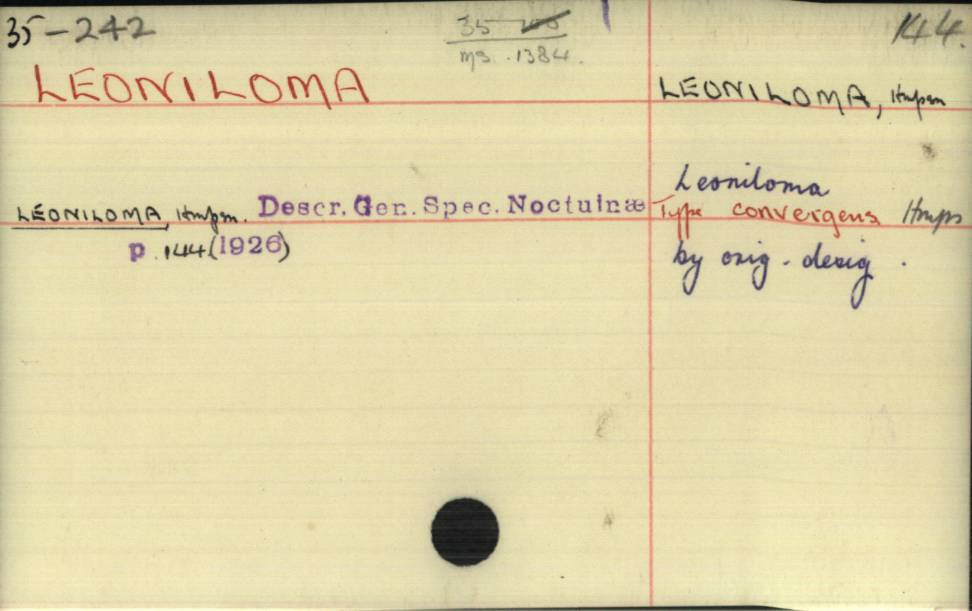 35-242
35
ms. 1384.
144.
LEONILOMA
LEONILOMA, Hmpsn
LEONILOMA, Hmpsn. Descr. Gen. Spec. Noctuinæ
p. 144 (1926)
Leoniloma
Type convergens Hmps
by orig. desig.